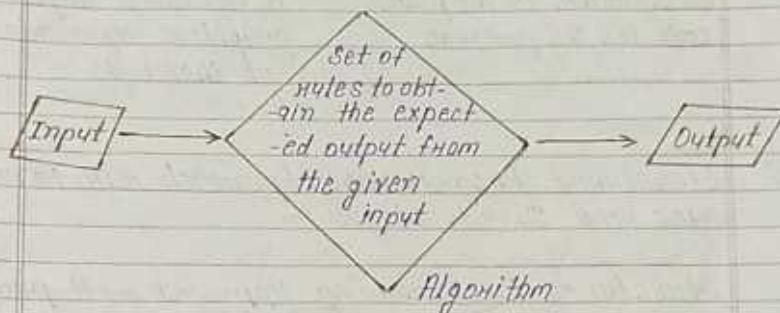 Set of
rules to obt-
-ain the expect
-ed output from
the given
input
Input
Output
Algorithm